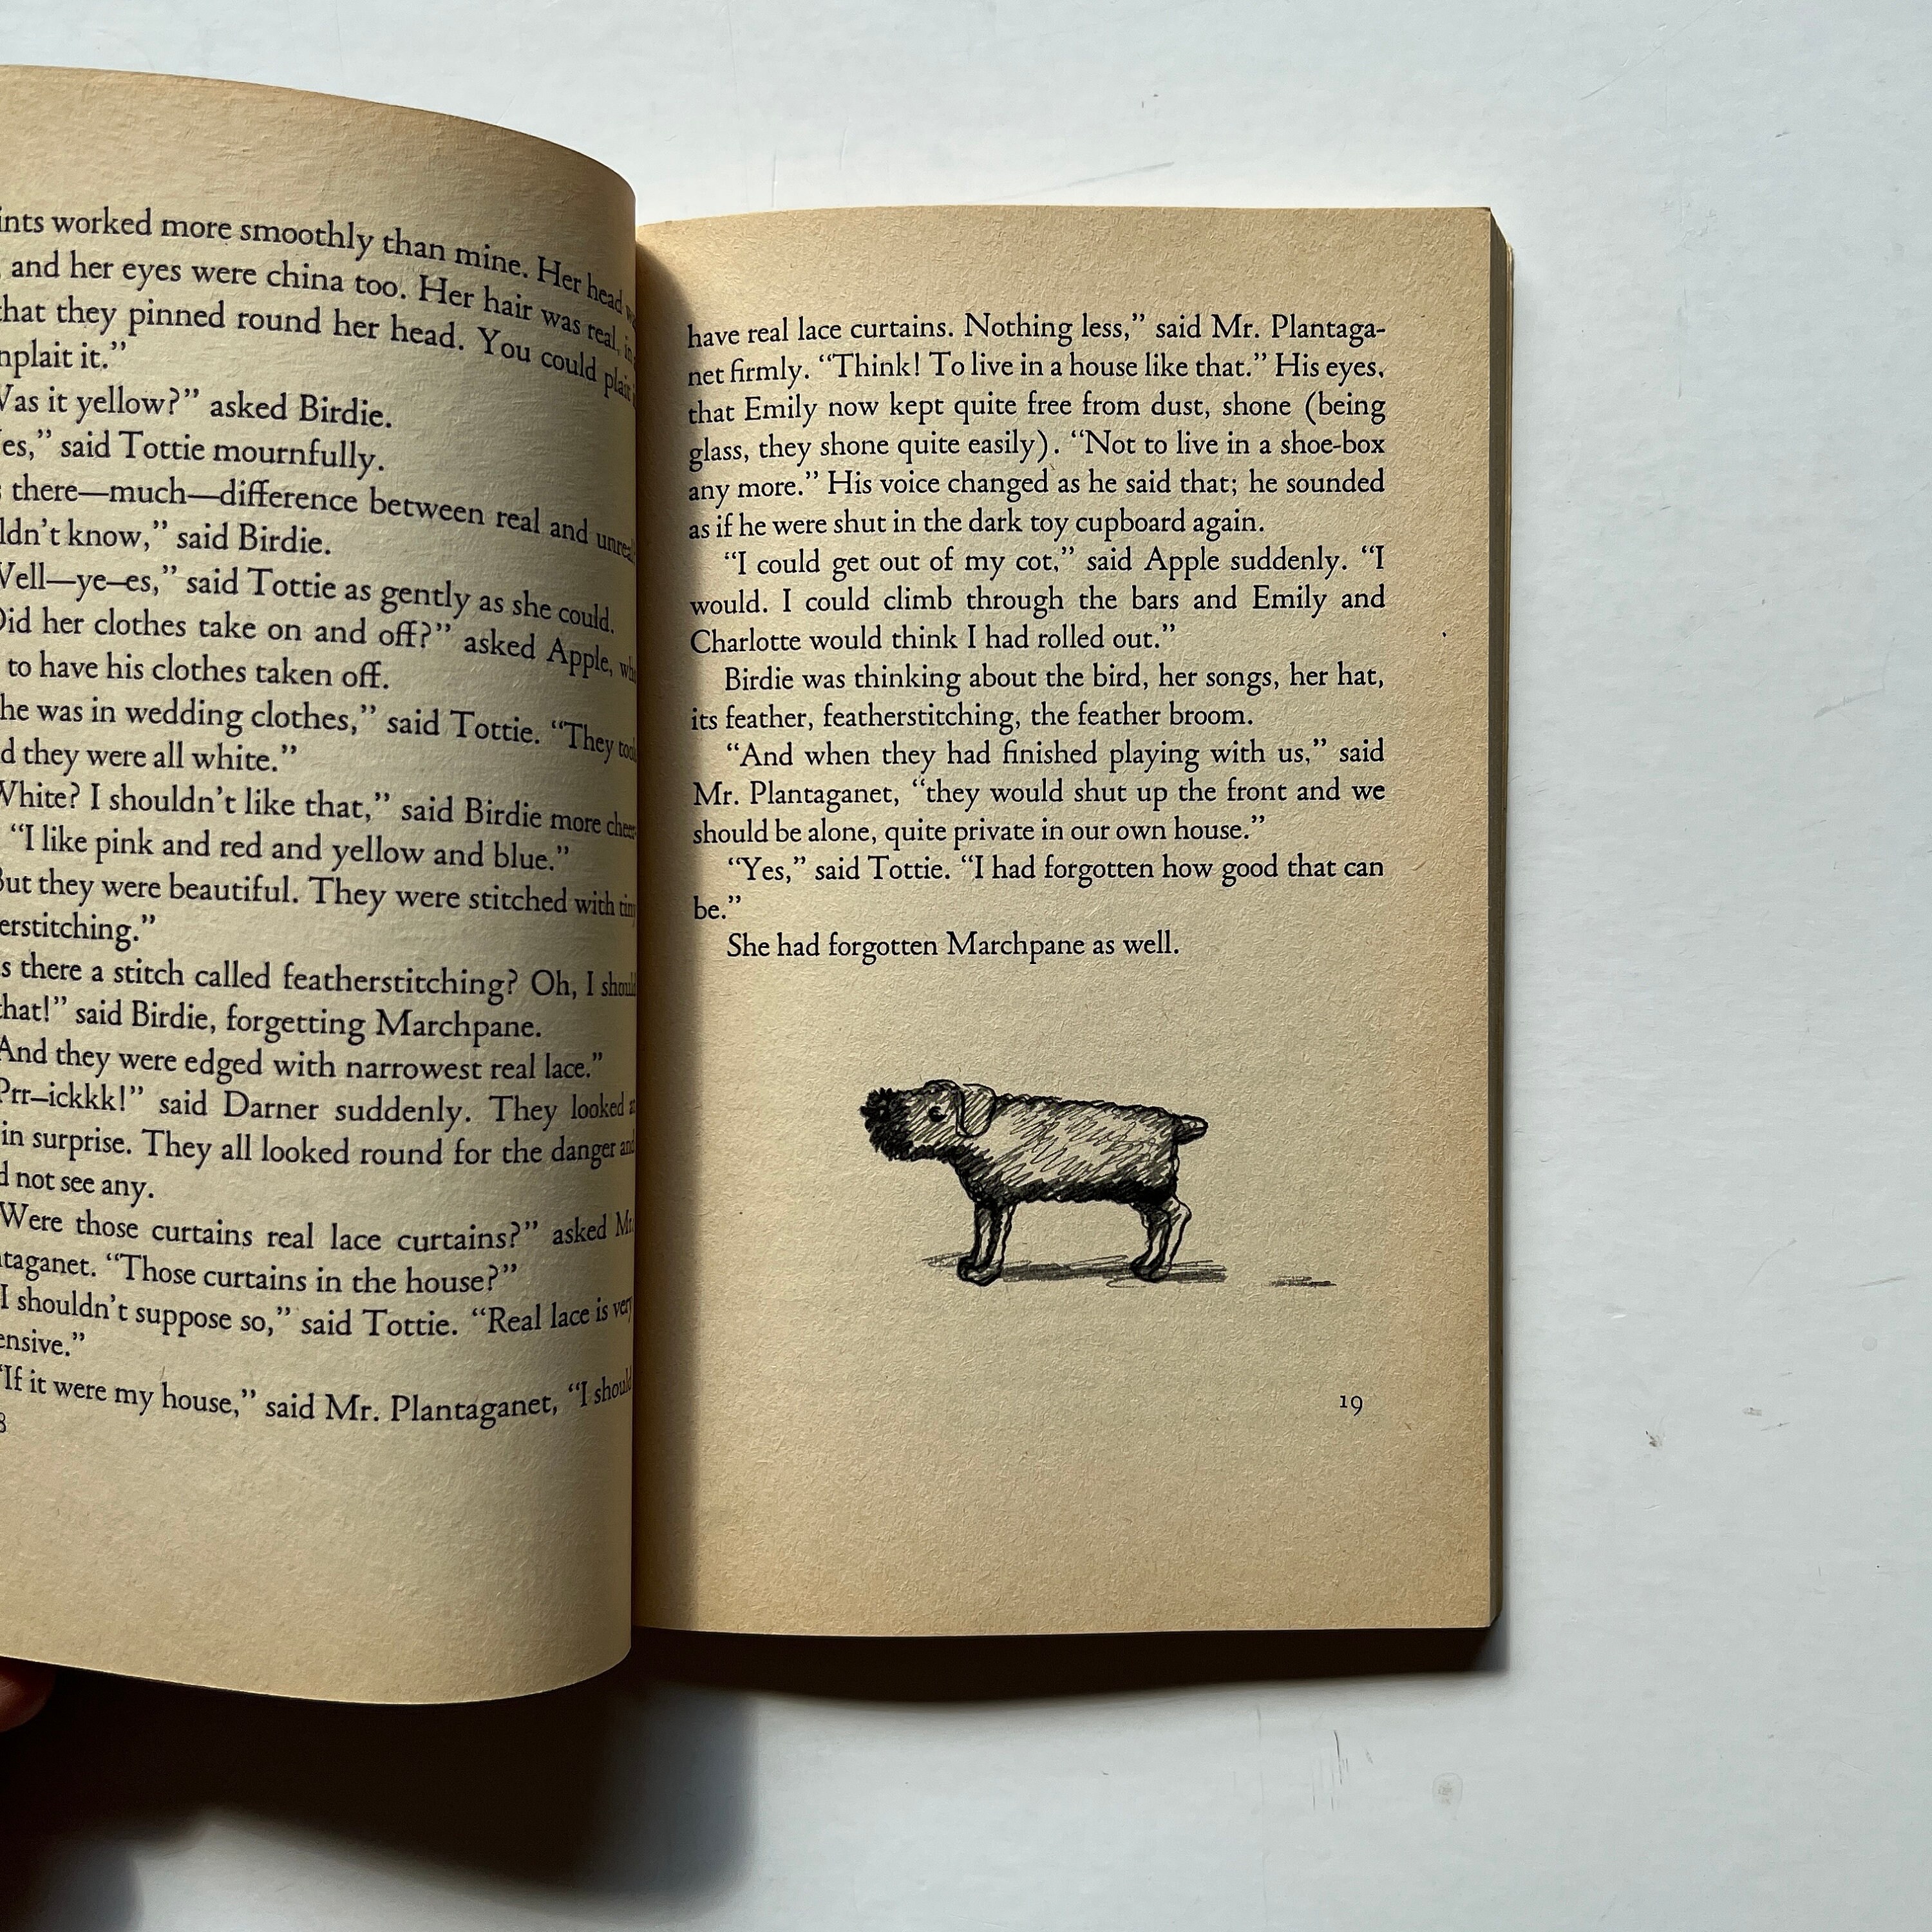 ints worked more smoothly than mine. Her head
and her eyes were china too. Her hair was real,
that they pinned round her head. You could plait
nplait it.”
Was it yellow?” asked Birdie.
es,” said Tottie mournfully.
there—much—difference between real and unreal
ldn’t know,” said Birdie.
Well—ye–es,” said Tottie as gently as she could.
Did her clothes take on and off?” asked Apple,
to have his clothes taken off.
he was in wedding clothes,” said Tottie. “They took
d they were all white.”
White? I shouldn’t like that,” said Birdie more
“I like pink and red and yellow and blue.”
But they were beautiful. They were stitched with
erstitching.”
s there a stitch called featherstitching? Oh, I should
that!” said Birdie, forgetting Marchpane.
And they were edged with narrowest real lace.”
Prr–ickkk!” said Darner suddenly. They looked
in surprise. They all looked round for the danger and
d not see any.
Were those curtains real lace curtains?” asked Mr.
taganet. “Those curtains in the house?”
I shouldn’t suppose so,” said Tottie. “Real lace is very
ensive.”
“If it were my house,” said Mr. Plantaganet, “I should
8
have real lace curtains. Nothing less,” said Mr. Plantaga-
net firmly. “Think! To live in a house like that.” His eyes,
that Emily now kept quite free from dust, shone (being
glass, they shone quite easily). “Not to live in a shoe-box
any more.” His voice changed as he said that; he sounded
as if he were shut in the dark toy cupboard again.
“I could get out of my cot,” said Apple suddenly. “I
would. I could climb through the bars and Emily and
Charlotte would think I had rolled out.”
Birdie was thinking about the bird, her songs, her hat,
its feather, featherstitching, the feather broom.
“And when they had finished playing with us,” said
Mr. Plantaganet, “they would shut up the front and we
should be alone, quite private in our own house.”
“Yes,” said Tottie. “I had forgotten how good that can
be.”
She had forgotten Marchpane as well.
19